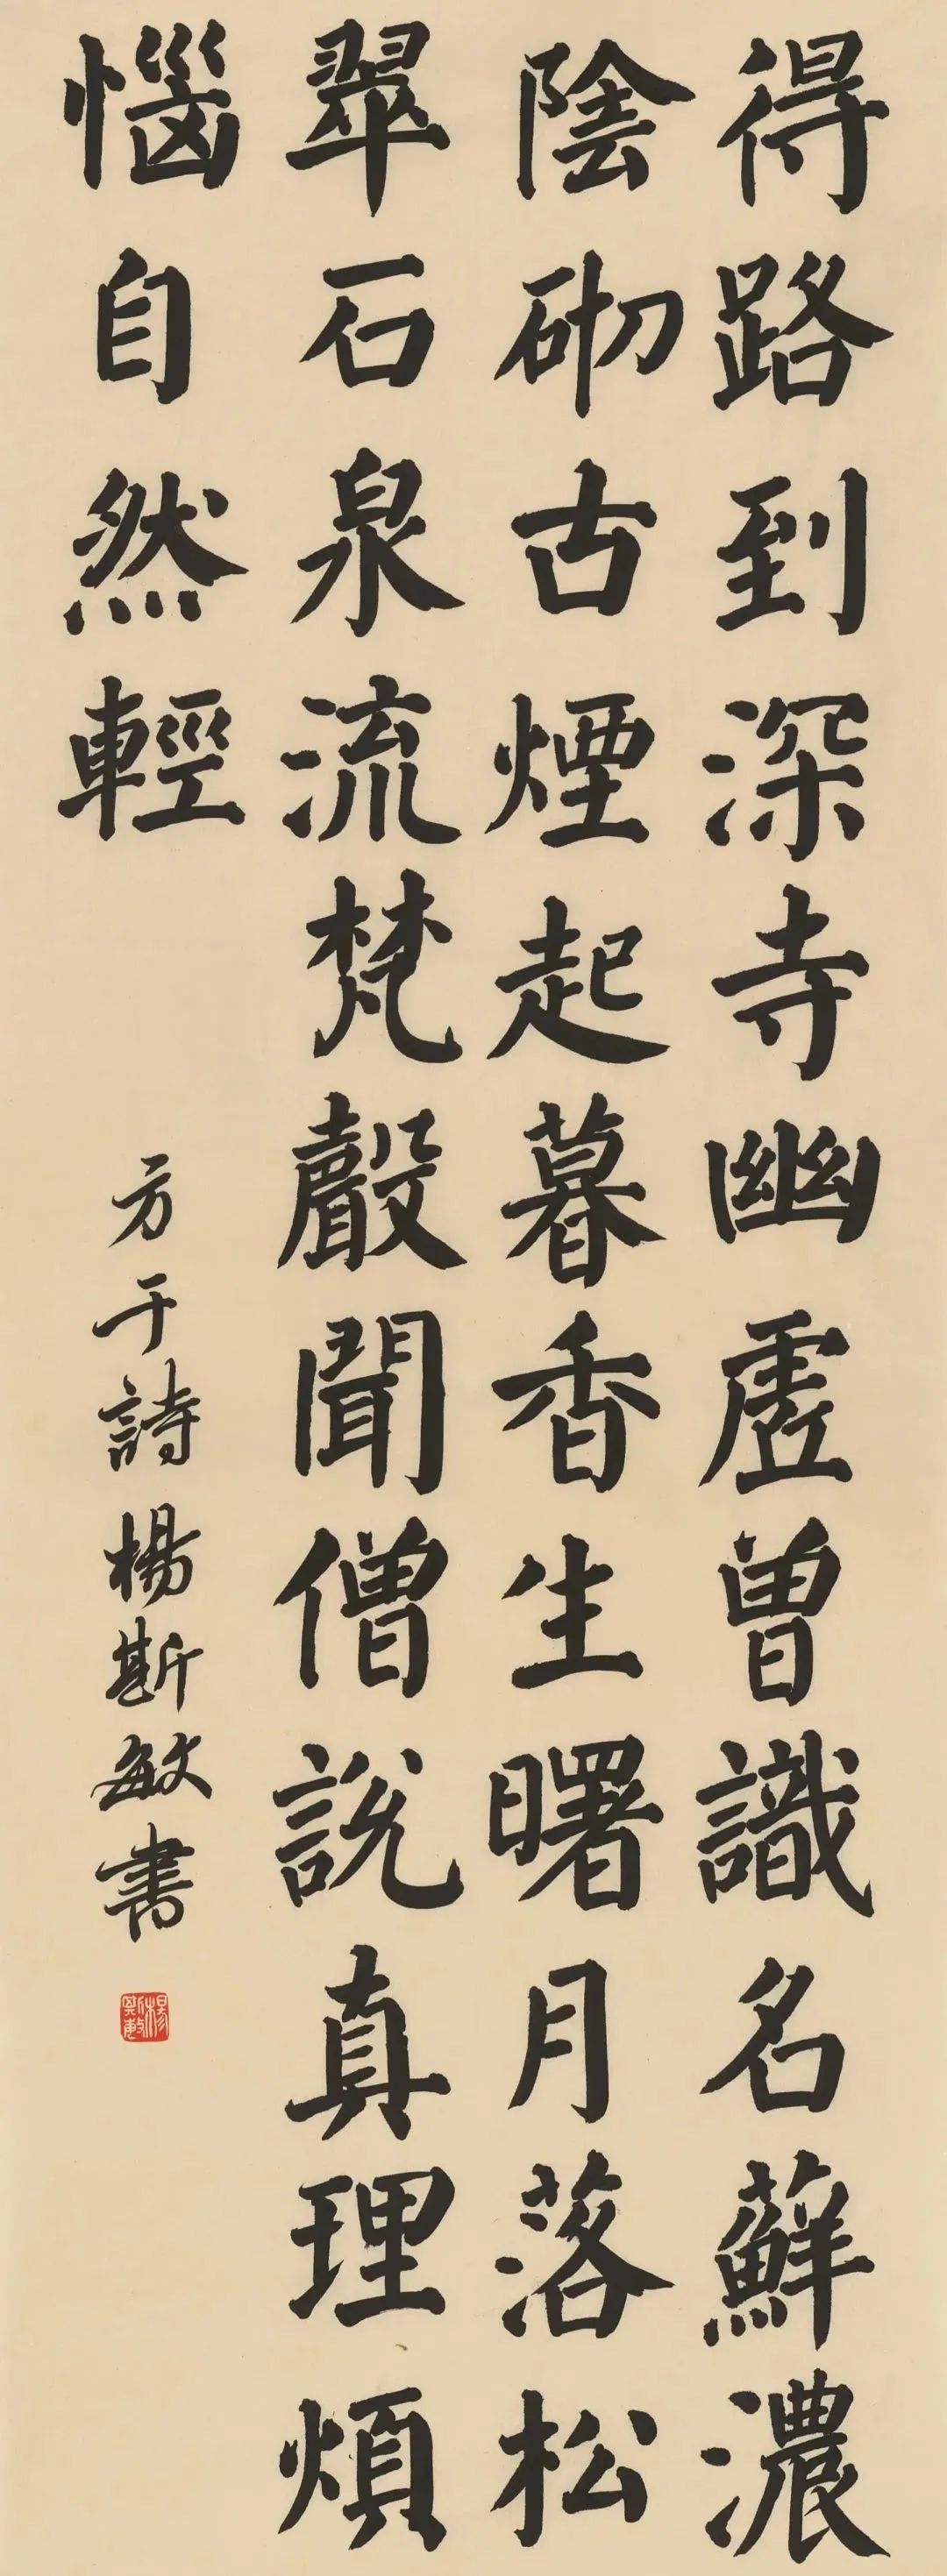 得路到深寺幽虛曾識名蘚濃
陰砌古煙起暮香生曙月落松
翠石泉流梵聲聞僧說真理煩
惱自然輕
方干詩楊斯敏書
楊斯敏